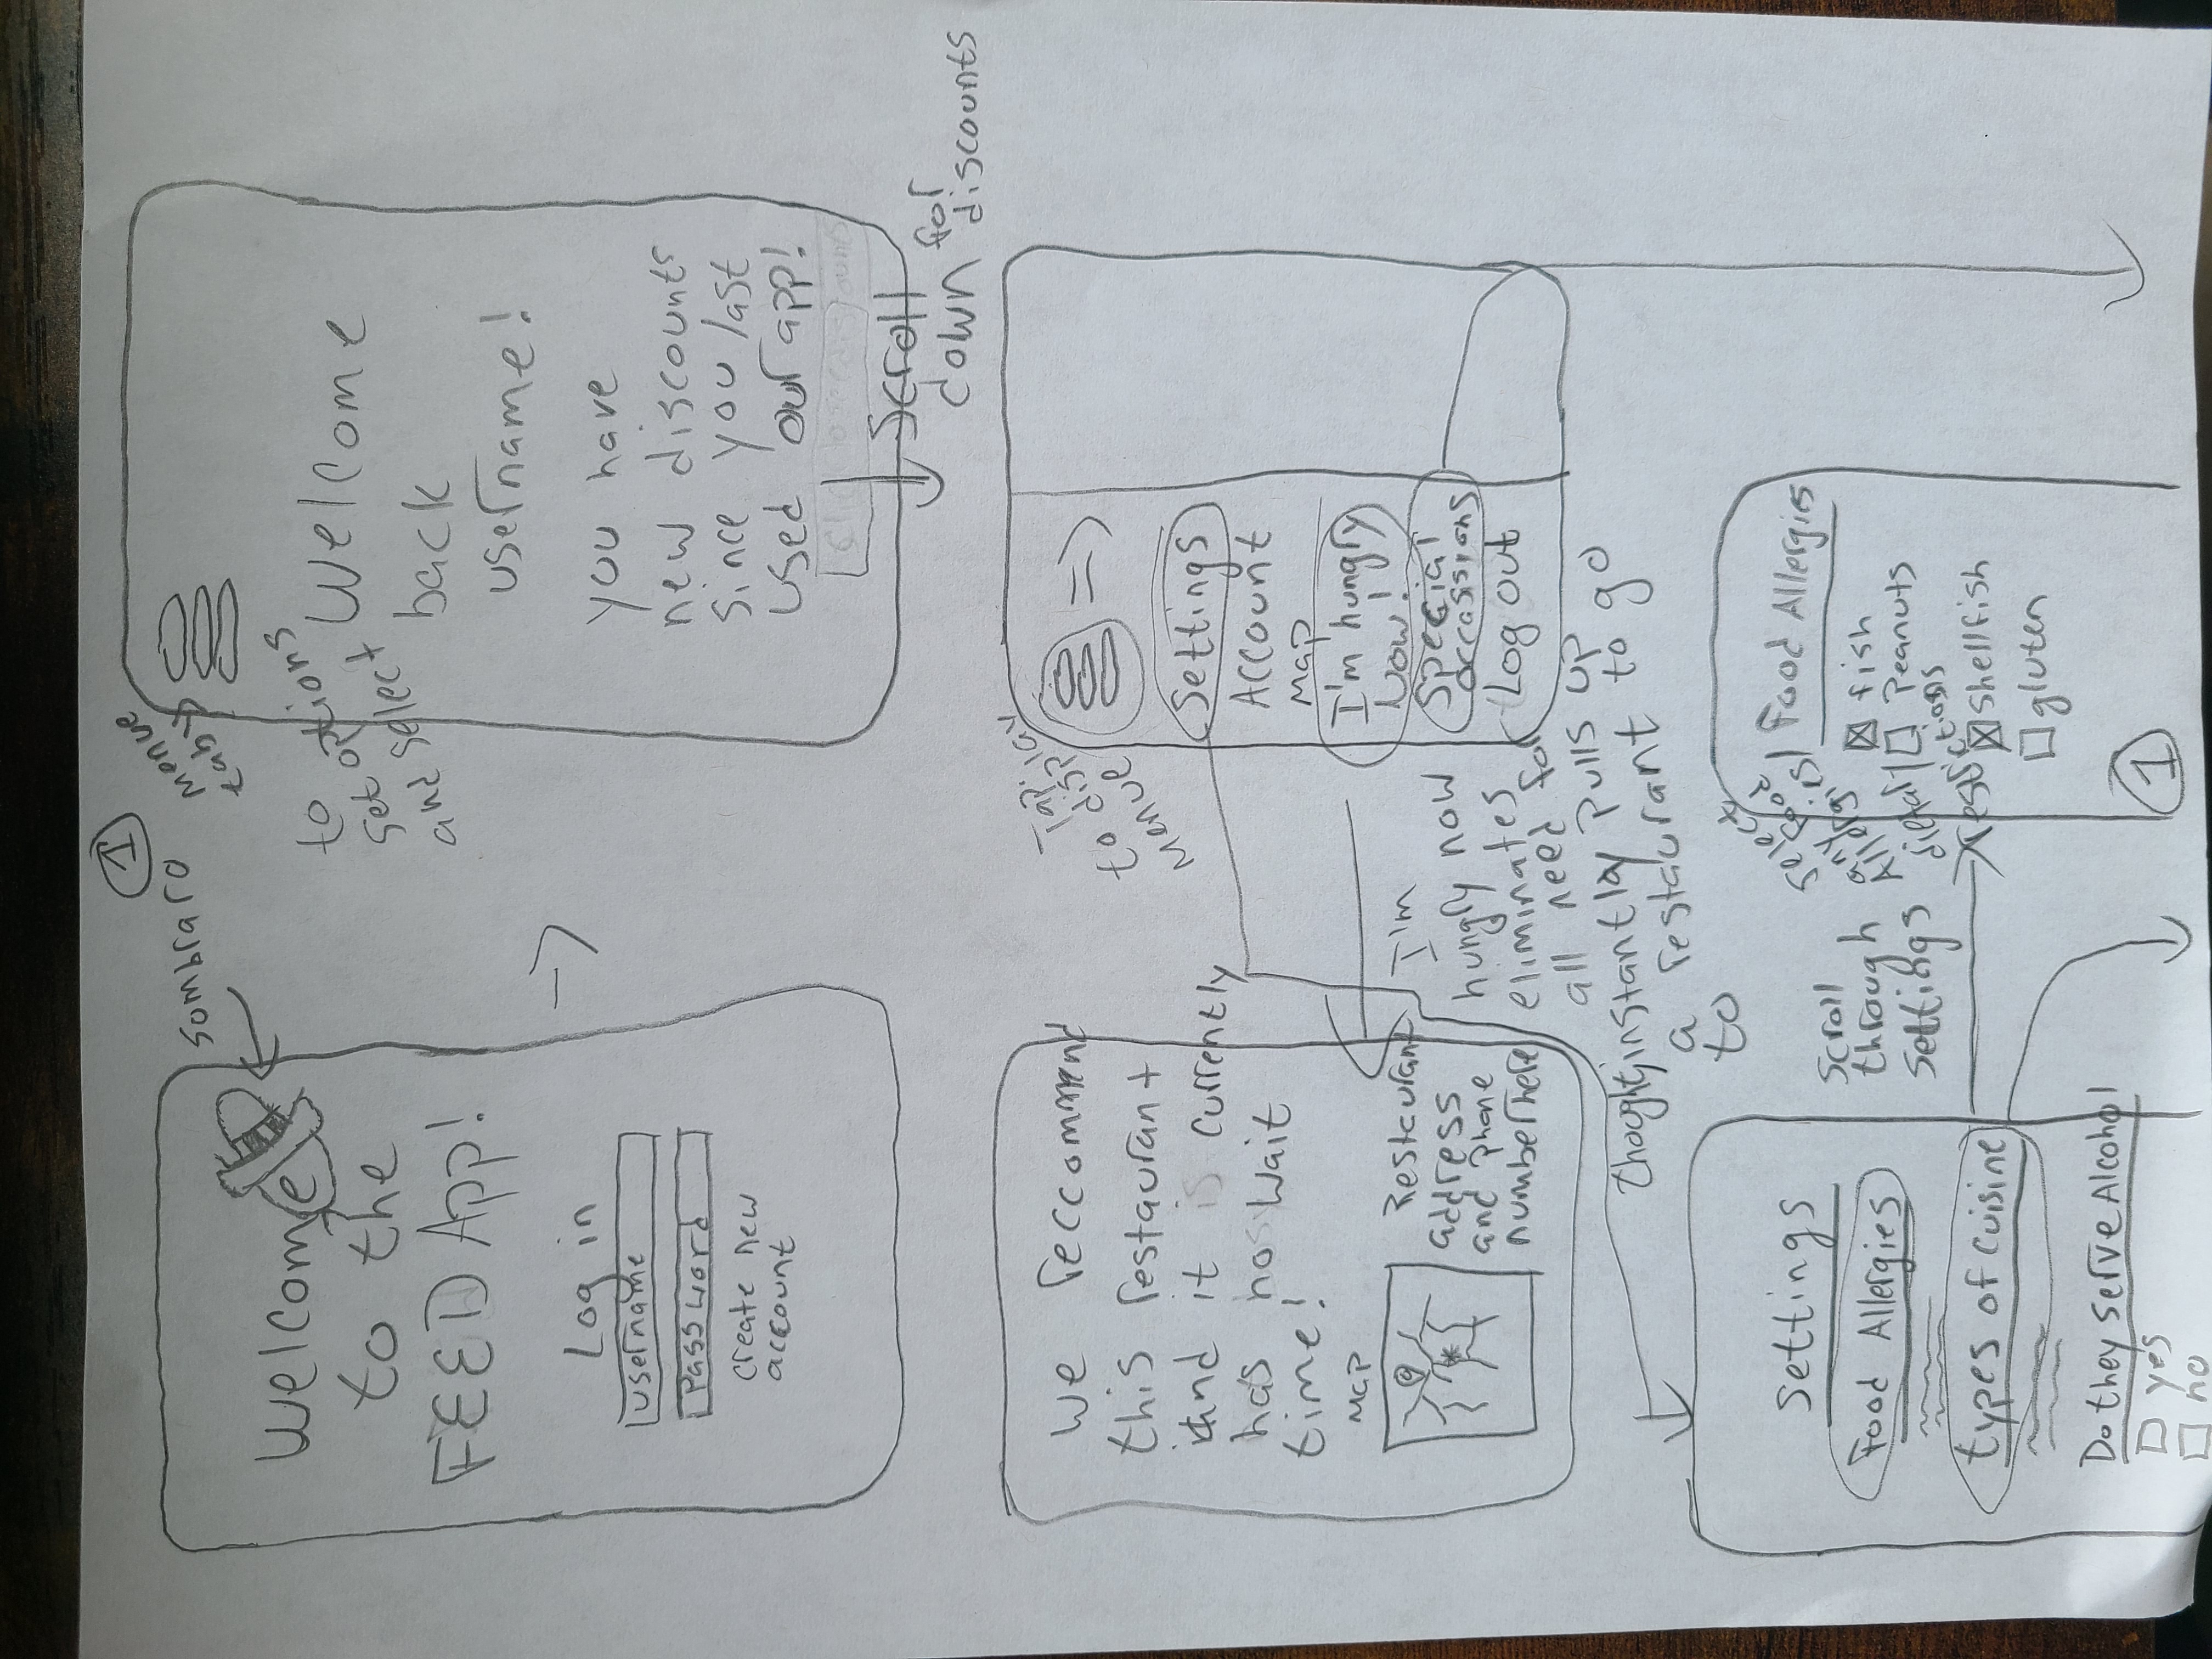 1
sombraro
Welcome
to the
FEED App!
Log in
username
Password
create new
account
menue
tab
to
set options
and select
Welcome
back
username!
you have
new discounts
since you last
used our app!
Scroll
down for
discounts
we reccommend
this restaurant
and it currently
has no wait
time!
Map
Restaurant
address
and phone
number here
Tap
to display
Menue
Settings
Account
Map
I'm hungry
Now!
Special
occassions
Log out
I'm
hungry now
eliminates
all need for
thought, instantly pulls up
a restaurant to go
to
Settings
Food Allergies
types of cuisine
Do they serve Alcohol
yes
no
Scroll
through
settings
select
any food
Allergies/
dietary
restrictions
Food Allergies
fish
Peanuts
shellfish
gluten
1